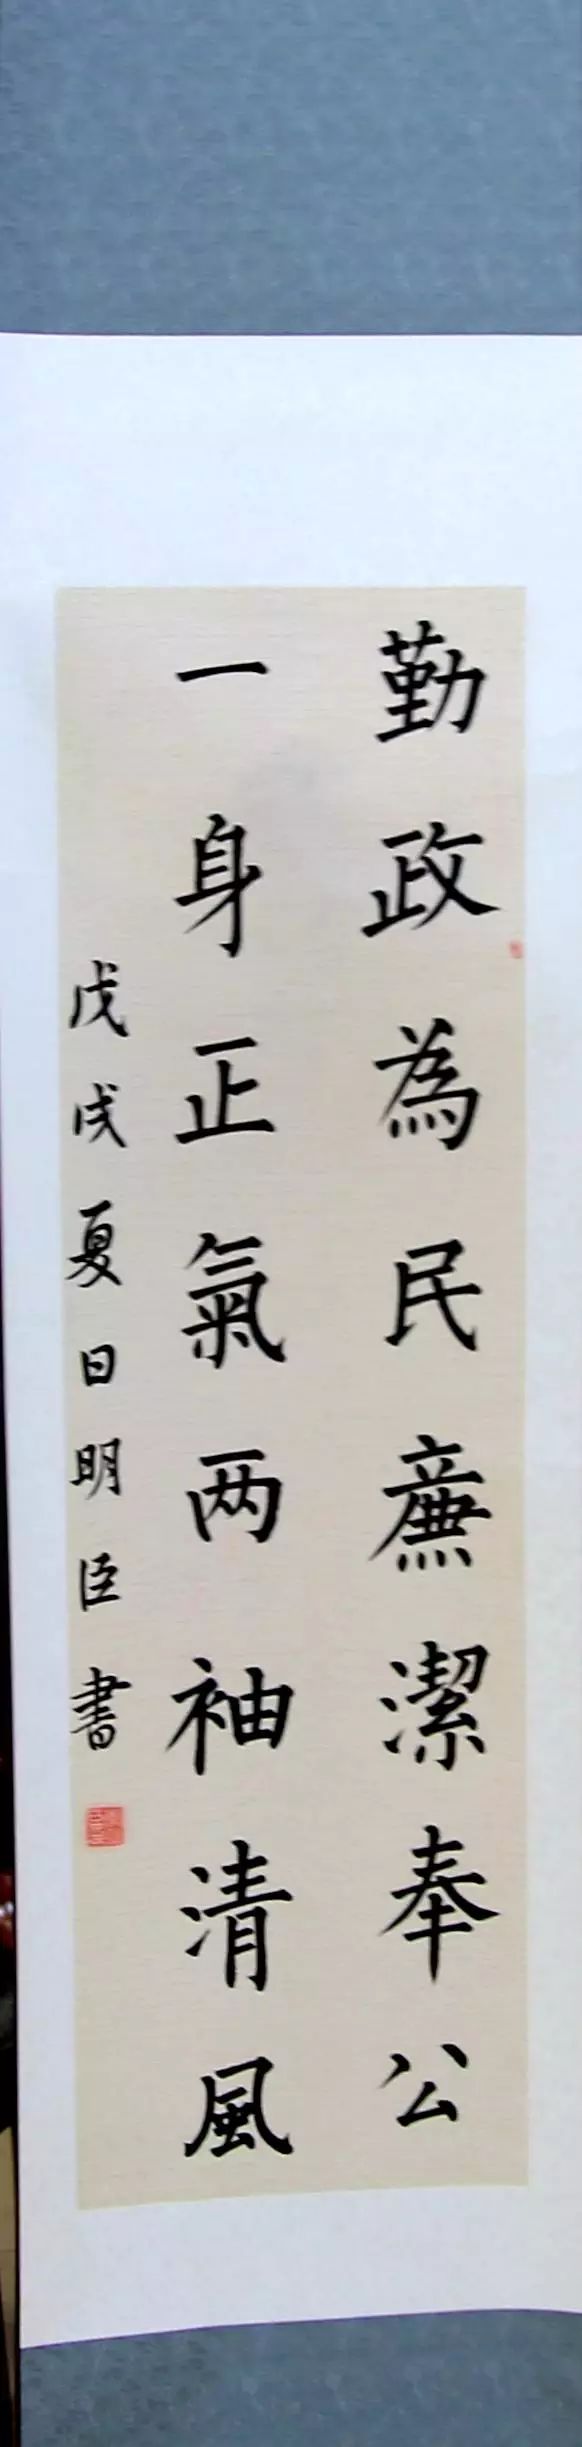 勤政為民廉潔奉公
一身正氣两袖清風
戊戌夏日明臣書